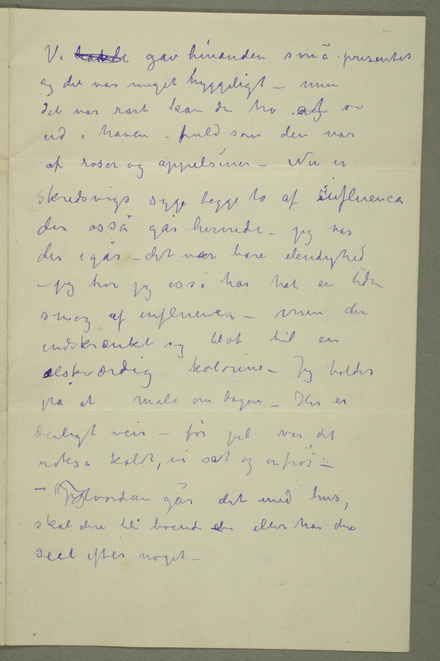 Vi havde gav hinanden små presenter
og det var meget hyggeligt – men
det var rart kan du tro at se
ud i haven – fuld som den var
af roser og appelsiner – Nu er
Skredsvigs syge begge to af influenca
der også går hernede – jeg var
der igår – det var bare elendighed
– jeg tror jeg også har hat en liden
smag af influenca – men den
indskrænket sig blot til en
elskværdig kolorine – Jeg holder
på at male om dagen – Her er
deiligt veir – før jul var det
nokså koldt, vi sat og infrøs –
– Hvordan går det med hus,
skal dere bli boende der eller har dere
seet efter noget –